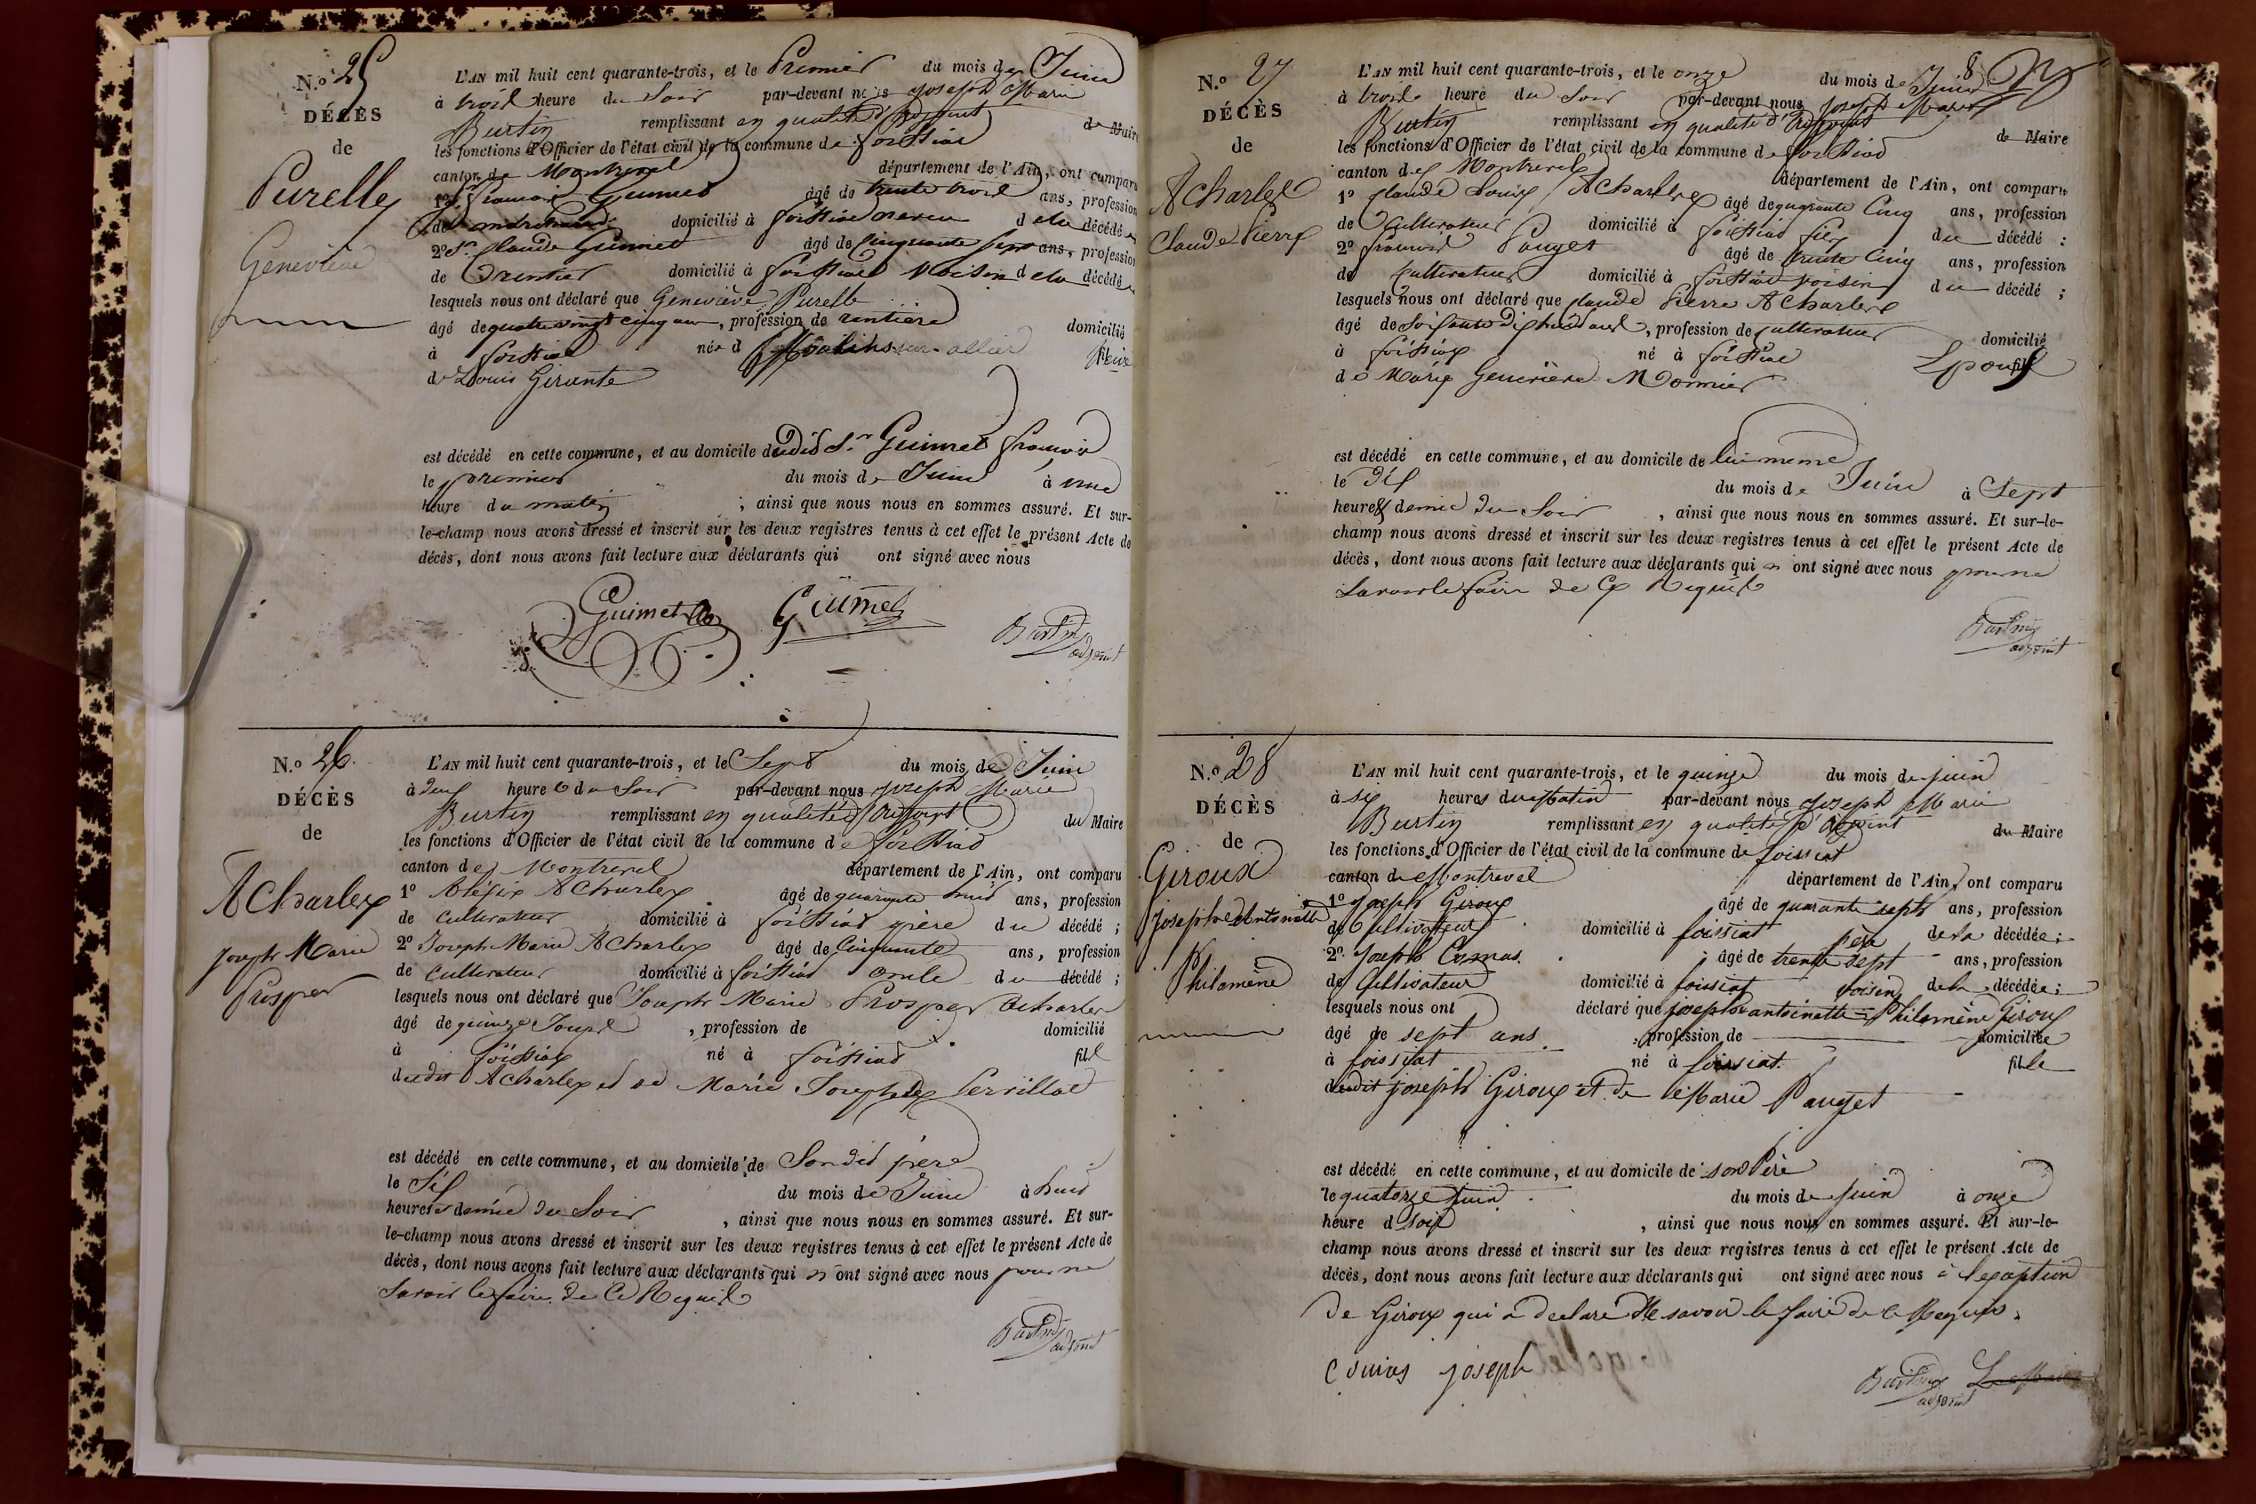 N.o 25
DÉCÈS
de
Purelle
Geneviève
L'AN mil huit cent quarante-trois, et le Premier du mois de Juin
à trois heure du Soir par-devant nous Joseph Marie
Burtin remplissant en qualité d'Adjoint de Maire
les fonctions d'Officier de l'état civil de la commune de foissiat
canton de Montrevel département de l'Ain, ont comparu
1o Sr. francois Guimet âgé de trente trois ans, profession
de domicilié à foissiat neveu dela décédée
2o Sr. Claude Guimet âgé de Cinquante sept ans, profession
de rentier domicilié à foissiat Voisin dela décédée
lesquels nous ont déclaré que Geneviève Purelle
âgé de quatre vingt cinq ans, profession de rentière domicilié
à foissiat née à Moulins-sur-allier Veuve
de Louis Girante
est décédé en cette commune, et au domicile dudit Sr Guimet francois
le premier du mois de Juin à une
heure du matin ; ainsi que nous nous en sommes assuré. Et sur-
le-champ nous avons dressé et inscrit sur les deux registres tenus à cet effet le présent Acte de
décès, dont nous avons fait lecture aux déclarants qui ont signé avec nous
Guimet Guimet
Burtin
adjoint
N.o 26.
DÉCÈS
de
Acharlex
Joseph Marie
Prosper
L'AN mil huit cent quarante-trois, et le Sept du mois de Juin
à deux heure du Soir par-devant nous Joseph Marie
Burtin remplissant en qualité d'Adjoint du Maire
les fonctions d'Officier de l'état civil de la commune de foissiat
canton de Montrevel département de l'Ain, ont comparu
1o Acharlex âgé de quarante huit ans, profession
de cultivateur domicilié à foissiat père du décédé ;
2o Joseph Marie Acharlex âgé de Cinquante ans, profession
de cultivateur domicilié à foissiat oncle du décédé ;
lesquels nous ont déclaré que Joseph Marie Prosper Acharlex
âgé de quinze Jours, profession de domicilié
à foissiat né à foissiat fils
dudit Acharlex et de Marie Josephte
est décédé en cette commune, et au domicile de Son dit père
le Six du mois de Juin à huit
heures demie du Soir , ainsi que nous nous en sommes assuré. Et sur-
le-champ nous avons dressé et inscrit sur les deux registres tenus à cet effet le présent Acte de
décès, dont nous avons fait lecture aux déclarants qui n'ont signé avec nous pour ne
Savoir le faire de Ce Requis
Burtin
adjoint
8
N.o 27
DÉCÈS
de
Acharlex
Claude Pierre
L'AN mil huit cent quarante-trois, et le onze du mois de Juin
à trois heure du Soir par-devant nous Joseph Marie
Burtin remplissant en qualité d'Adjoint de Maire
les fonctions d'Officier de l'état civil de la commune de foissiat
canton de Montrevel département de l'Ain, ont comparu
1o Claude Louis Acharlex âgé de quarante Cinq ans, profession
de Cultivateur domicilié à foissiat fils du décédé ;
2o francois Pauget âgé de trente Cinq ans, profession
de Cultivateur domicilié à foissiat voisin du décédé ;
lesquels nous ont déclaré que Claude Pierre Acharlex
âgé de Soixante dix huit ans, profession de Cultivateur domicilié
à foissiat né à foissiat Epoux
de Marie Geneviève Monnier
est décédé en cette commune, et au domicile de lui meme
le dix du mois de Juin à Sept
heure & demie du Soir , ainsi que nous nous en sommes assuré. Et sur-le-
champ nous avons dressé et inscrit sur les deux registres tenus à cet effet le présent Acte de
décès, dont nous avons fait lecture aux déclarants qui n'ont signé avec nous pour ne
Savoir le faire de Ce Requis
Burtin
adjoint
N.o 28
DÉCÈS
de
Giroux
josephte Antoinette
Philomène
L'AN mil huit cent quarante-trois, et le quinze du mois de juin
à six heures du Matin par-devant nous Joseph Marie
Burtin remplissant en qualité d'Adjoint du Maire
les fonctions d'Officier de l'état civil de la commune de foissiat
canton de Montrevel département de l'Ain, ont comparu
1o Joseph Giroux âgé de quarante sept ans, profession
de Cultivateur domicilié à foissiat père de la décédée ;
2o Joseph Camus âgé de trente sept ans, profession
de Cultivateur domicilié à foissiat voisin de la décédée ;
lesquels nous ont déclaré que josephte antoinette Philomène Giroux
âgé de sept ans , profession de domiciliée
à foissiat né à foissiat. fille
dudit joseph Giroux et de Marie Pauget
est décédé en cette commune, et au domicile de son Père
le quatorze juin du mois de juin à onze
heure d soir , ainsi que nous nous en sommes assuré. Et sur-le-
champ nous avons dressé et inscrit sur les deux registres tenus à cet effet le présent Acte de
décès, dont nous avons fait lecture aux déclarants qui ont signé avec nous à l'exception
de Giroux qui a declaré Ne savoir le faire de ce Requis.
Camus joseph
Burtin
adjoint
Le Maire